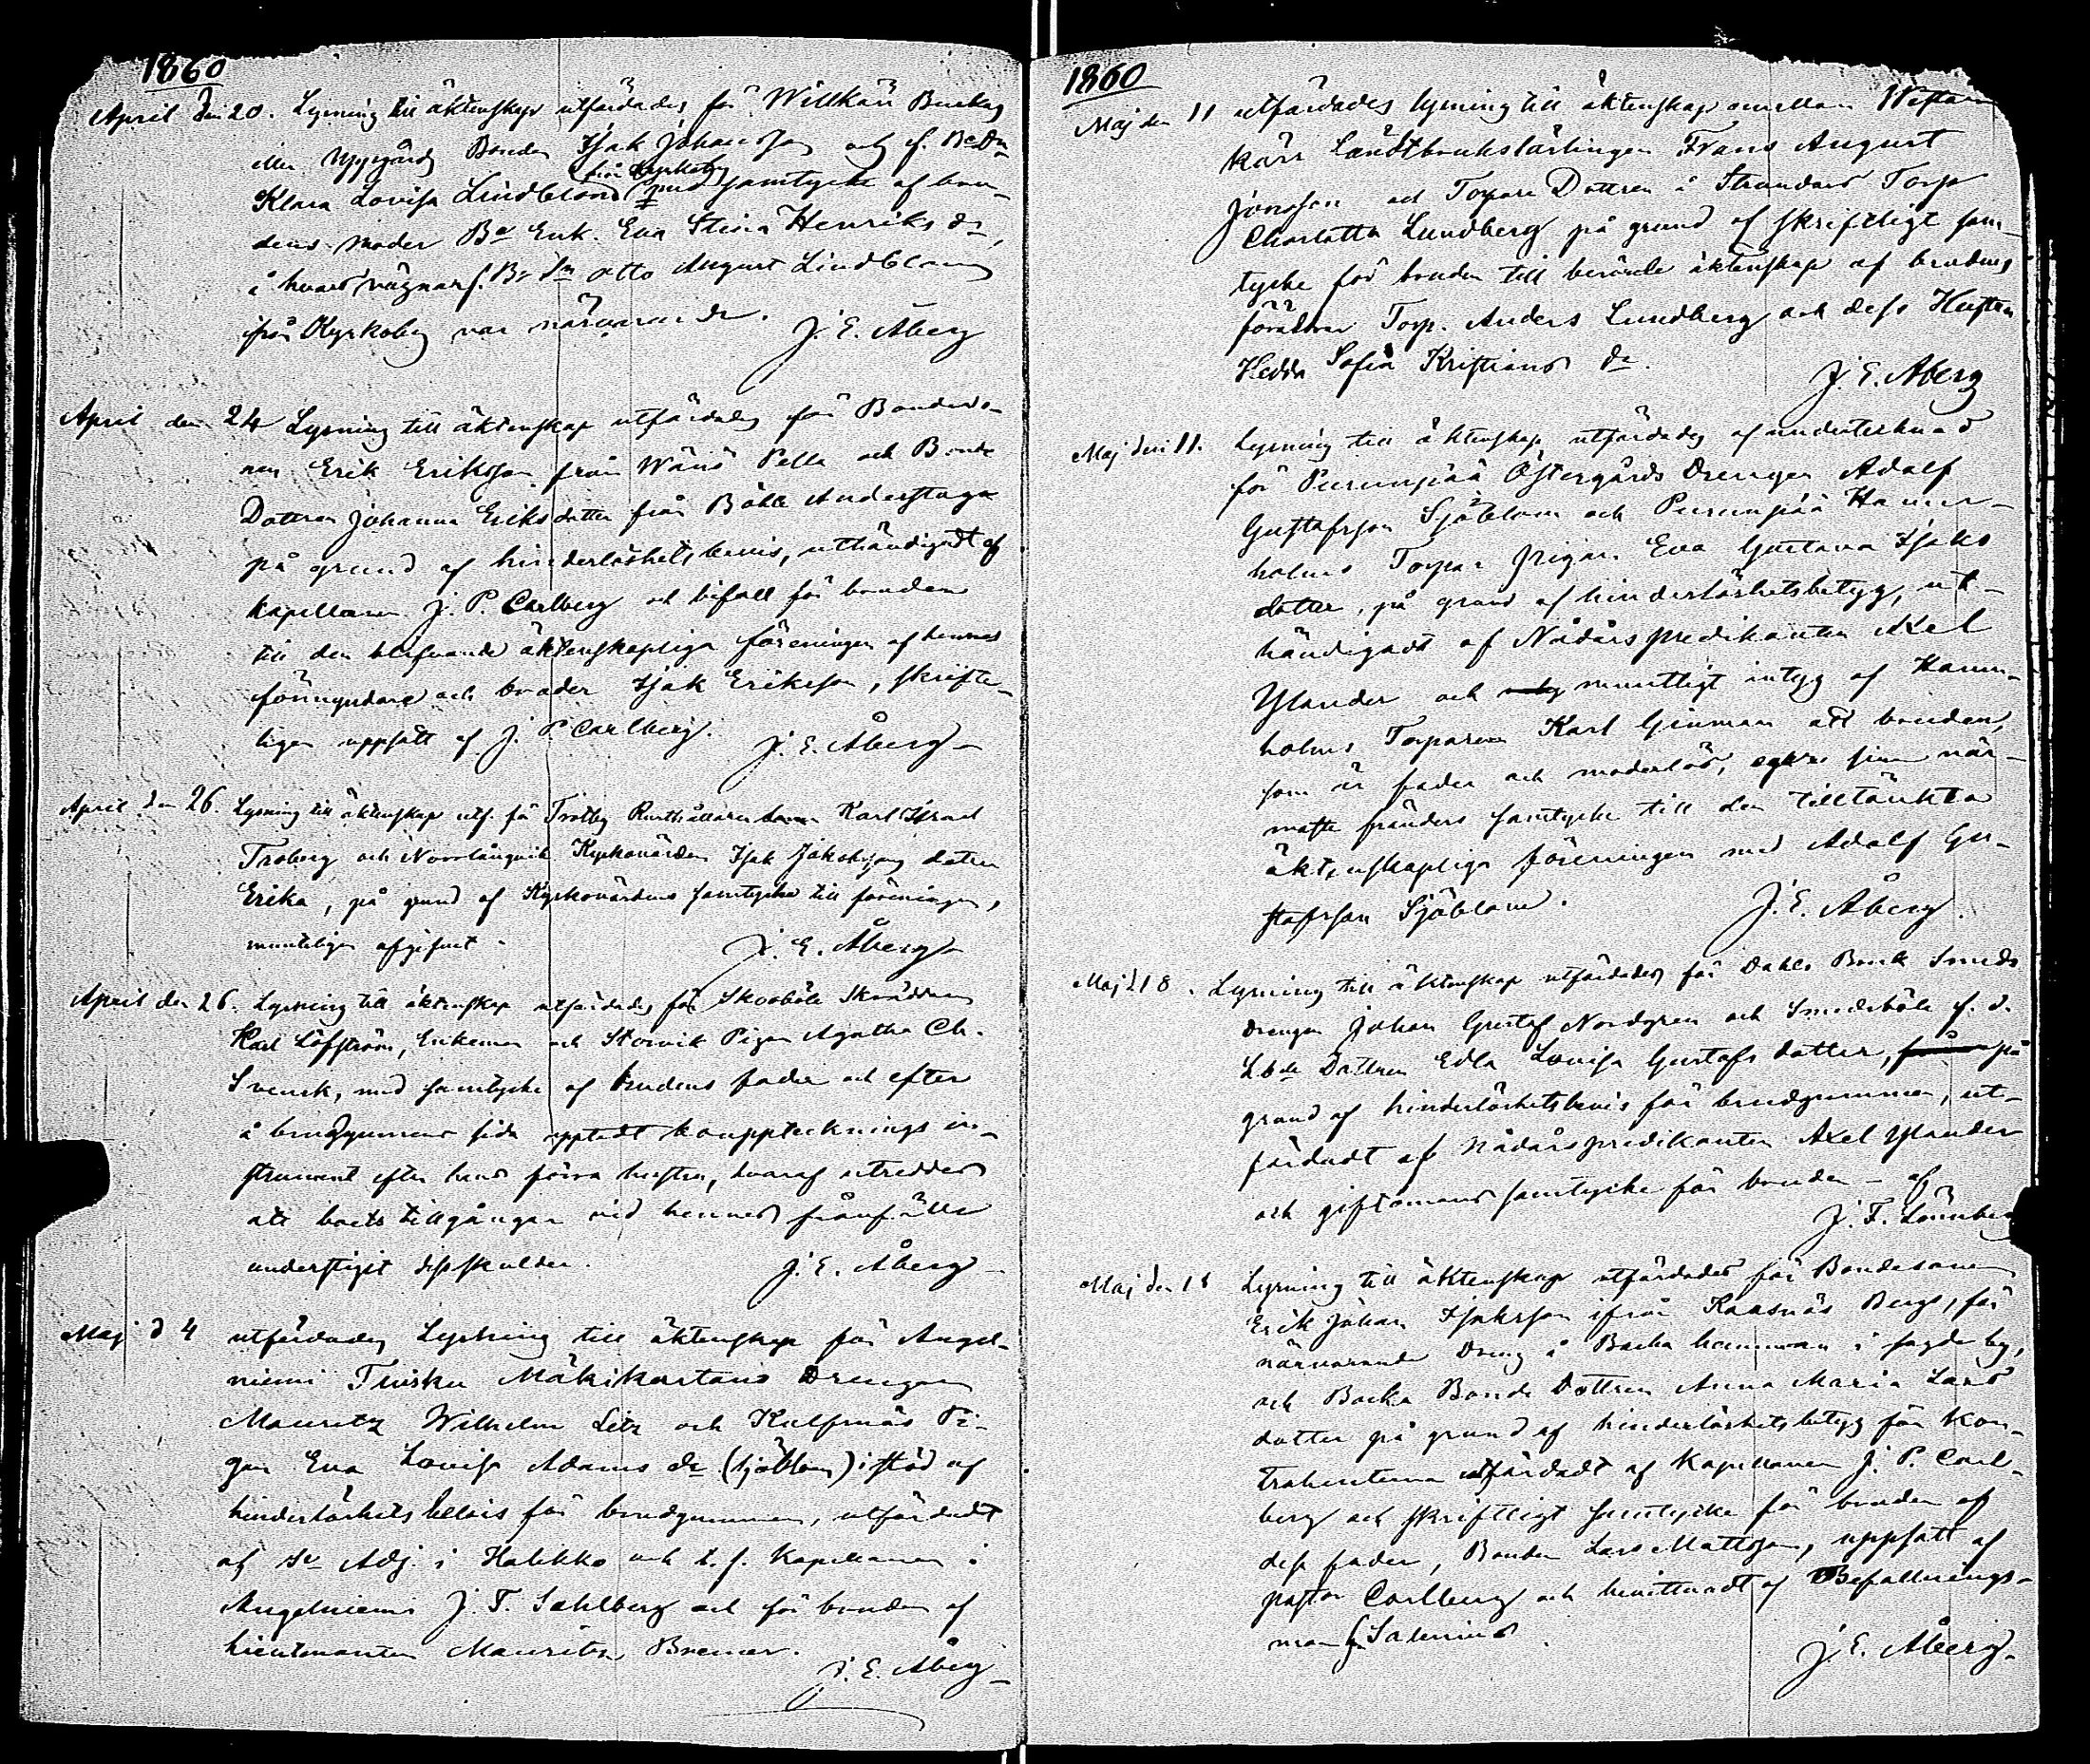 1860
April den 20. Lysning till äktenskap utfärdades för Willkärr Backas
eller Uppgårds Bonden Isak Johansson och f. BeDn
från Kyrkoby
Klara Lovisa Lindblom med samtycke af bru-
dens moder Be Enk. Eva Stina Henriks dr,
i hvars vägnar f. Be Sn Otto August Lindblom
från Kyrkoby var närvarande.
J. E. Åberg
April den 24 Lysning till äktenskap utfärdades för Bondeso-
nen Erik Eriksson från Wänö Pella och Bonde
Dottren Johanna Eriksdotter från Böle Anderstuga
på grund af hinderlöshetsbevis, uthändigadt af
kapellanen J. P. Carlberg och bifall för bruden
till den blifvande äktenskapliga föreningen af hennes
förmyndare och broder Isak Eriksson, skrifte-
ligen uppsatt af J. P. Carlberg.
J. E. Åberg
April den 26. Lysning till äktenskap utf. för Trotby Rusthållaren Karl Israel
Troberg och Norrlångvik Kyrkovärden Isak Jakobssons dotter
Erika, på grund af Kyrkovärdens samtycke till föreningen,
munteligen afgifvet.
J. E. Åberg
April den 26. Lysning till äktenskap utfärdades för Skoböle Skräddaren
Karl Löfström, Enkeman och Storvik Pigan Agatha Ch.
Svensk, med samtycke af brudens fader och efter
å brudgummens sida upptedt bouppteknings in-
strument efter hans förra hustru, hvaraf utreddes
att boets tillgångar vid hennes frånfälle
understigit dess skulder.
J. E. Åberg
Maj d 4 utfärdades Lysning till äktenskap för Angel-
niemi Tuisku Mäkikartano Drengen
Mauritz Wilhelm Litz och Kulfsnäs Pi-
gan Eva Lovisa Adams dr (Sjöblom) i stöd af
hinderlöshets bevis för brudgummen, utfärdadt
af Sr Adj. i Halikko och t. f. Kapellanen i
Angelniemi J. T. Sahlberg och för bruden af
Lieutenanten Mauritz Bremer.
J. E. Åberg
1860
Maj den 11 utfärdades lysning till äktenskap emellan Westan
kärr Landtbrukslärlingen Frans August
Jonsson och Torpare Dottren i Strandars Torp
Charlotta Lundberg på grund af skriftligt sam-
tycke för bruden till berörde äktenskap af brudens
föräldrar Torp. Anders Lundberg och dess Hustru
Hedda Sofia Kristians dr.
J. E. Åberg
Maj den 11. Lysning till äktenskap utfärdades af undertecknad
för Purunpää Östergårds Drengen Adolf
Gustafsson Sjöblom och Purunpää Hamn-
holms Torpar Pigan Eva Gustava Isaks
dotter, på grund af hinderlöshetsbetyg, ut-
händigadt af Nådårspredikanten Axel
Ylander och muntligt intyg af Hamn-
holms Torparen Karl Ginman att bruden,
som är fader och moderlös, eger sina när-
maste fränders samtycke till den tilltänkta
äktenskapliga föreningen med Adolf Gu-
stafsson Sjöblom.
J. E. Åberg.
Maj d 18. Lysning till äktenskap utfärdades för Dahls Bruk Smeds
Drengen Johan Gustaf Nordgren och Smedsböle f. d.
Lbde Dottren Edla Lovisa Gustafs dotter, på
grund af hinderlöshetsbevis för brudgummen, ut-
färdadt af Nådårspredikanten Axel Ylander
och giftomans samtycke för bruden – af
J. F. Lönnberg
Maj den 18 Lysning till äktenskap utfärdades för Bondesonen
Erik Johan Isaksson ifrån Kaasnäs Bengs, för
närvarande Dreng å Backa hemman i sagde by,
och Backa Bonde Dottren Anna Maria Lars
dotter på grund af hinderlöshetsbetyg för kon-
trahenterna utfärdadt af Kapellanen J. P. Carl-
berg och skriftligt samtycke för bruden af
dess fader, Bonden Lars Mattsson, uppsatt af
pastor Carlberg och bevittnadt af Befallnings-
man Salenius.
J. E. Åberg